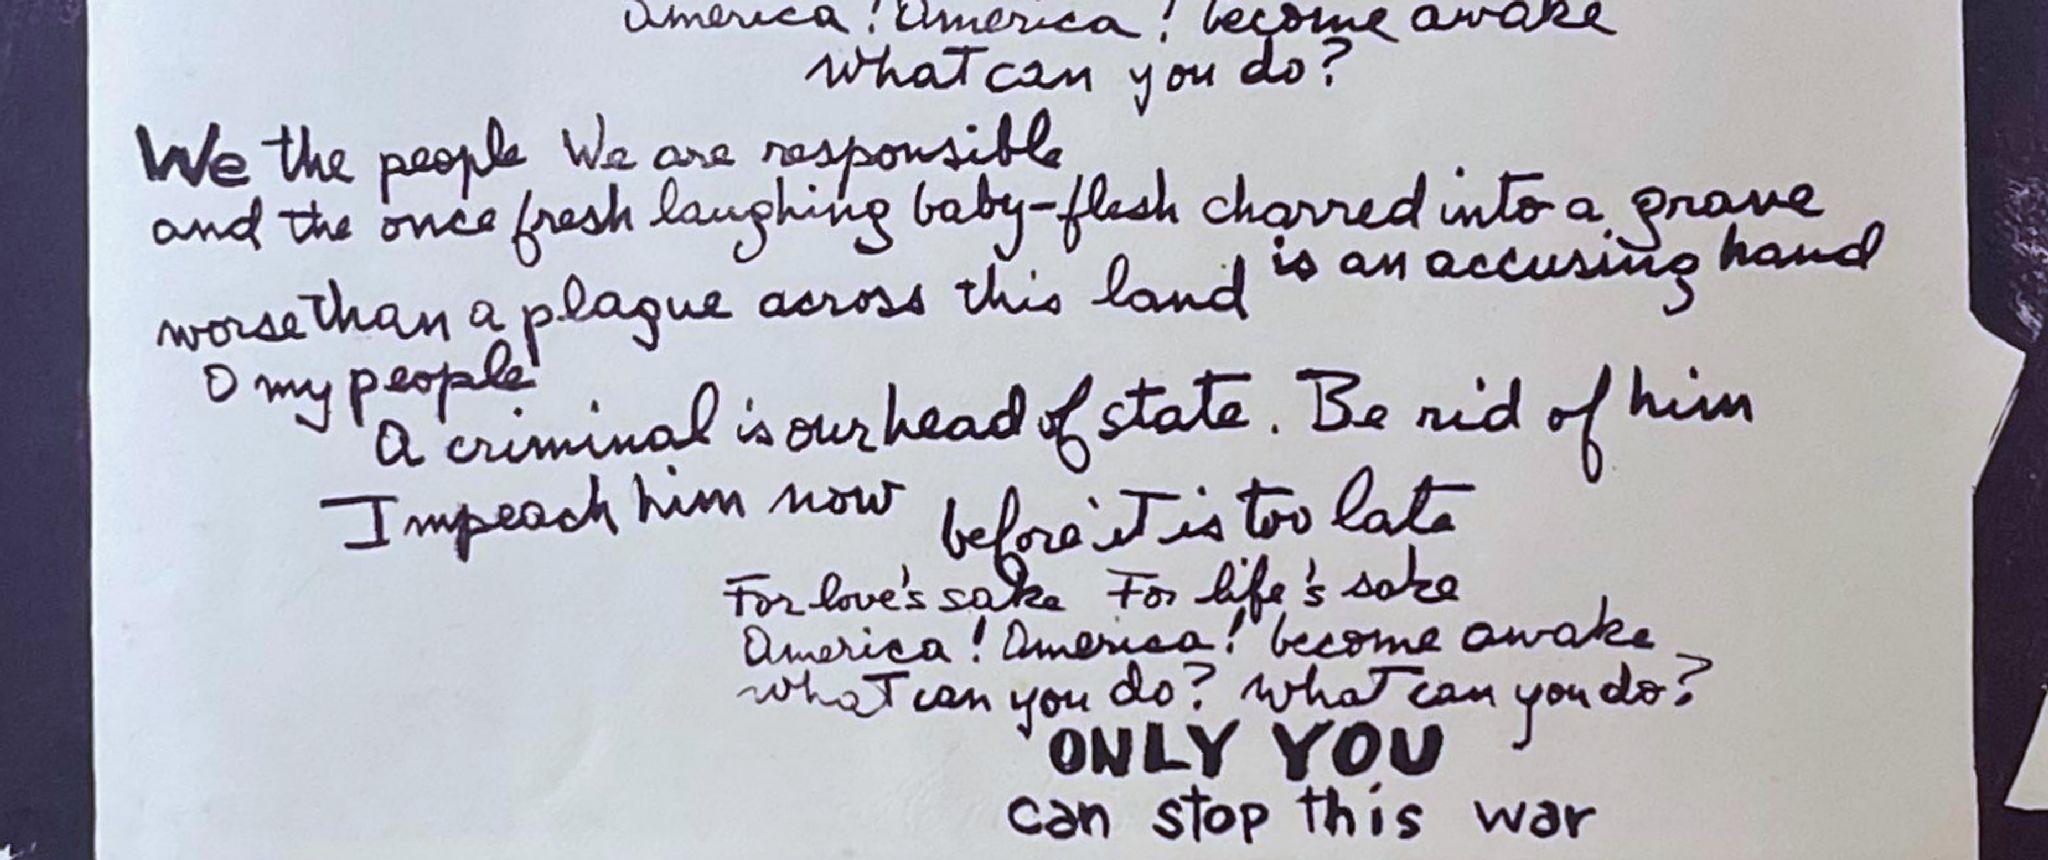 America! America! become awake
What can you do?
We the people We are responsible
and the once fresh laughing baby-flesh charred into a grave
is an accusing hand
worse than a plague across this land
O my people
A criminal is our head of state. Be rid of him
Impeach him now before it is too late
For love's sake For life's sake
America! America! become awake
What can you do? What can you do?
ONLY YOU
can stop this war